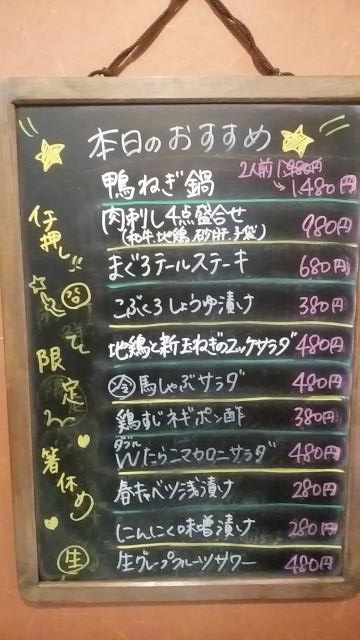 本日のおすすめ
2人前 1,980円
鴨ねぎ鍋 → 1,480円
肉刺し4点盛合せ 980円
(和牛、地鶏、砂肝、子袋)
まぐろテールステーキ 680円
こぶくろしょうゆ漬け 380円
地鶏と新玉ねぎのユッケサラダ 480円
冷 馬しゃぶサラダ 480円
鶏すじネギポン酢 380円
ダブル
Wたらこマカロニサラダ 480円
春キャベツ浅漬け 280円
にんにく味噌漬け 280円
生グレープフルーツサワー 480円
イチ押し!!
限定
箸休め
生